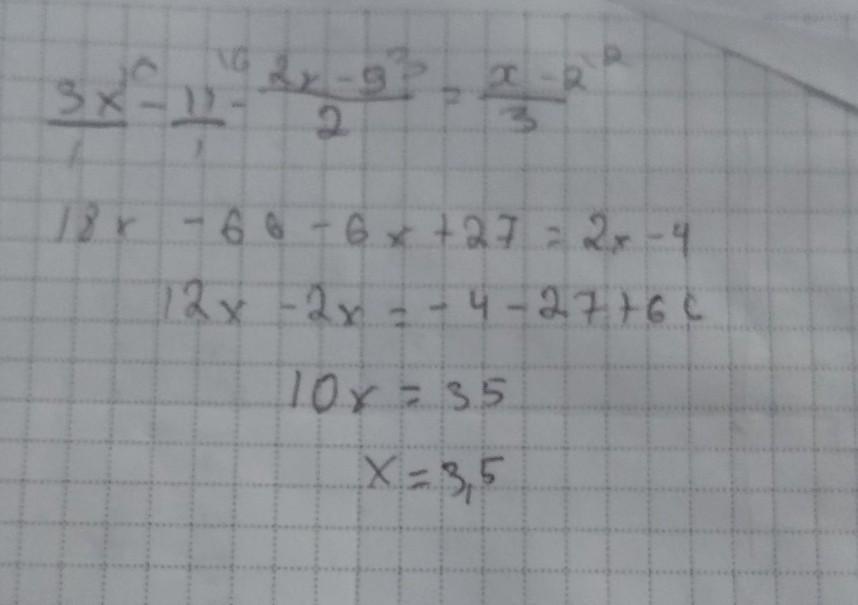 3x/1 - 11/1 - 2x - 9/2 = x - 2/3
18x - 66 - 6x + 27 = 2x - 4
12x - 2x = - 4 - 27 + 66
10x = 35
x = 3,5